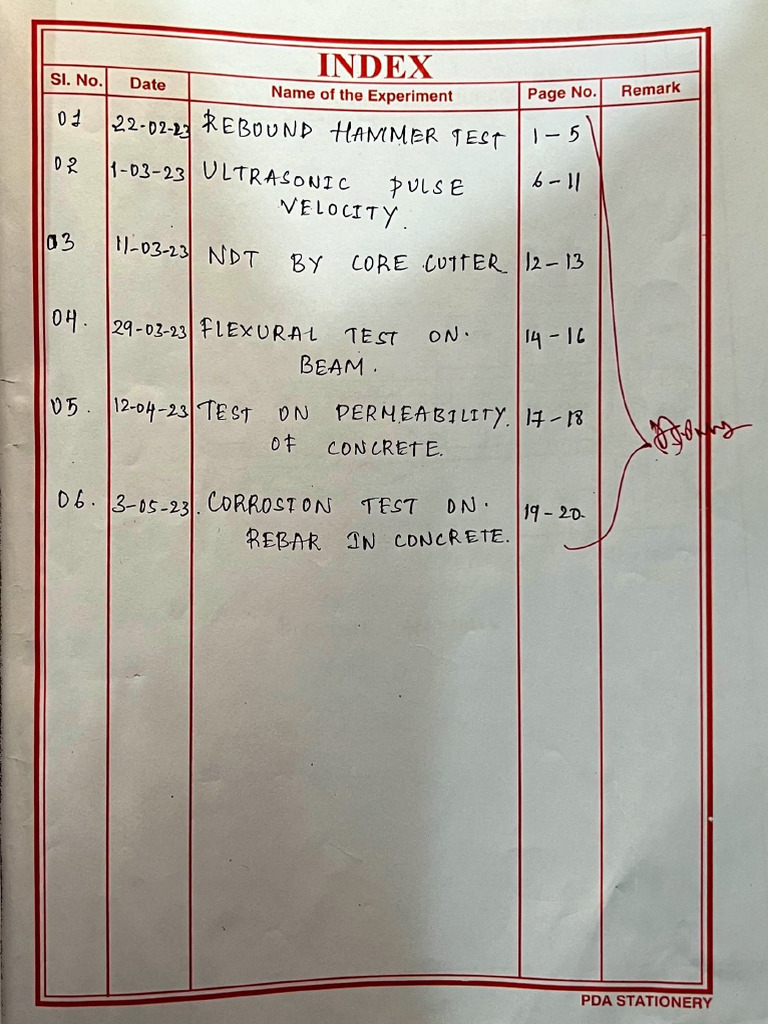 INDEX
Sl. No. Date Name of the Experiment Page No. Remark
01 22-02-23 REBOUND HAMMER TEST 1-5
02 1-03-23 ULTRASONIC PULSE 6-11
VELOCITY.
03 11-03-23 NDT BY CORE CUTTER 12-13
04. 29-03-23 FLEXURAL TEST ON. 14-16
BEAM.
05. 12-04-23 TEST ON PERMEABILITY. 17-18
OF CONCRETE.
06. 3-05-23. CORROSION TEST ON. 19-20.
REBAR IN CONCRETE.
PDA STATIONERY